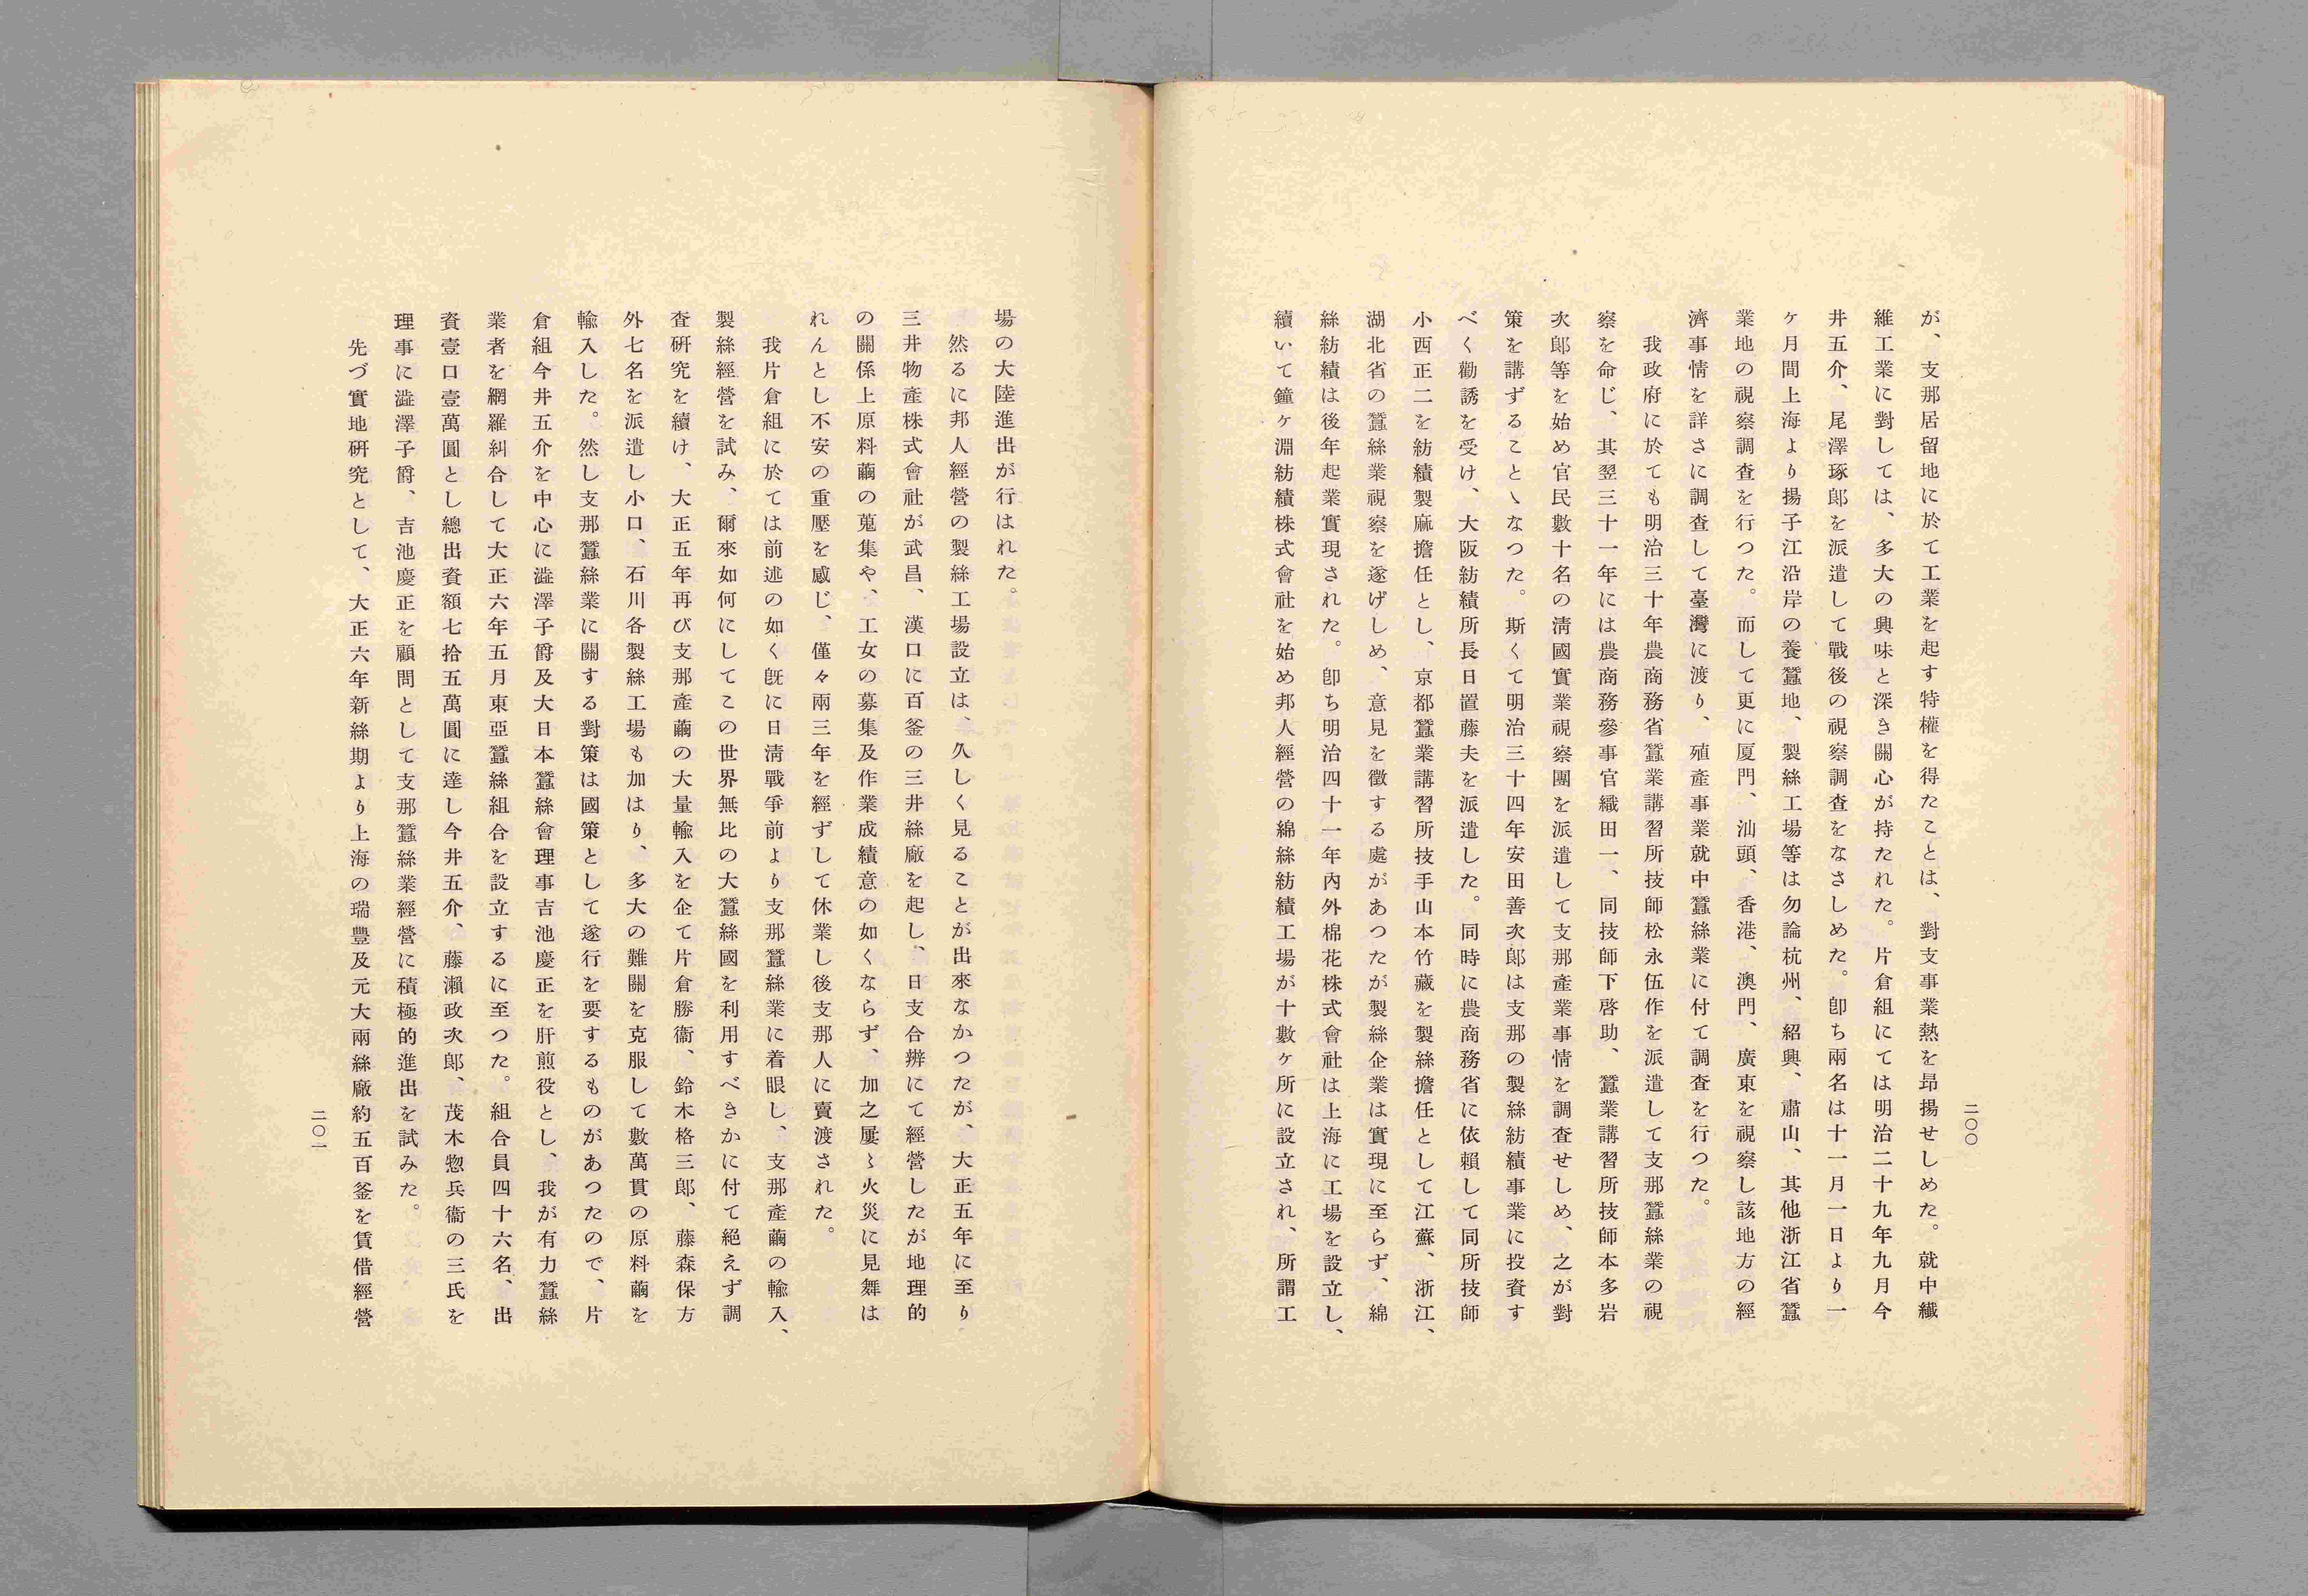 二〇〇
が、支那居留地に於て工業を起す特權を得たことは、對支事業熱を昂揚せしめた。就中纎
維工業に對しては、多大の興味と深き關心が持たれた。片倉組にては明治二十九年九月今
井五介、尾澤琢郞を派遣して戰後の視察調査をなさしめた。卽ち兩名は十一月一日より一
ケ月間上海より揚子江沿岸の養蠶地、製絲工場等は勿論杭州、紹興、肅山、其他浙江省蠶
業地の視察調査を行つた。而して更に厦門、汕頭、香港、澳門、廣東を視察し該地方の經
濟事情を詳さに調査して臺灣に渡り、殖產事業就中蠶絲業に付て調査を行つた。
我政府に於ても明治三十年農商務省蠶業講習所技師松永伍作を派遣して支那蠶絲業の視
察を命じ、其翌三十一年には農商務參事官織田一、同技師下啓助、蠶業講習所技師本多岩
次郞等を始め官民數十名の淸國實業視察團を派遣して支那產業事情を調査せしめ、之が對
策を講ずることゝなつた。斯くて明治三十四年安田善次郞は支那の製絲紡績事業に投資す
べく勸誘を受け、大阪紡績所長日置藤夫を派遣した。同時に農商務省に依賴して同所技師
小西正二を紡績製麻擔任とし、京都蠶業講習所技手山本竹藏を製絲擔任として江蘇、浙江、
湖北省の蠶絲業視察を遂げしめ、意見を徵する處があつたが製絲企業は實現に至らず、綿
絲紡績は後年起業實現された。卽ち明治四十一年內外棉花株式會社は上海に工場を設立し、
續いて鐘ケ淵紡績株式會社を始め邦人經營の綿絲紡績工場が十數ケ所に設立され、所謂工
場の大陸進出が行はれた。
然るに邦人經營の製絲工場設立は、久しく見ることが出來なかつたが、大正五年に至り
三井物產株式會社が武昌、漢口に百釜の三井絲廠を起し、日支合辨にて經營したが地理的
の關係上原料繭の蒐集や、工女の募集及作業成績意の如くならず、加之屢〻火災に見舞は
れんとし不安の重壓を感じ、僅々兩三年を經ずして休業し後支那人に賣渡された。
我片倉組に於ては前述の如く旣に日淸戰爭前より支那蠶絲業に着眼し、支那產繭の輸入、
製絲經營を試み、爾來如何にしてこの世界無比の大蠶絲國を利用すべきかに付て絕えず調
査硏究を續け、大正五年再び支那產繭の大量輸入を企て片倉勝衞、鈴木格三郞、藤森保方
外七名を派遣し小口、石川各製絲工場も加はり、多大の難關を克服して數萬貫の原料繭を
輸入した。然し支那蠶絲業に關する對策は國策として遂行を要するものがあつたので、片
倉組今井五介を中心に澁澤子爵及大日本蠶絲會理事吉池慶正を肝煎役とし、我が有力蠶絲
業者を網羅糾合して大正六年五月東亞蠶絲組合を設立するに至つた。組合員四十六名、出
資壹口壹萬圓とし總出資額七拾五萬圓に達し今井五介、藤瀨政次郞、茂木惣兵衞の三氏を
理事に澁澤子爵、吉池慶正を顧問として支那蠶絲業經營に積極的進出を試みた。
先づ實地硏究として、大正六年新絲期より上海の瑞豐及元大兩絲廠約五百釜を賃借經營
二〇一